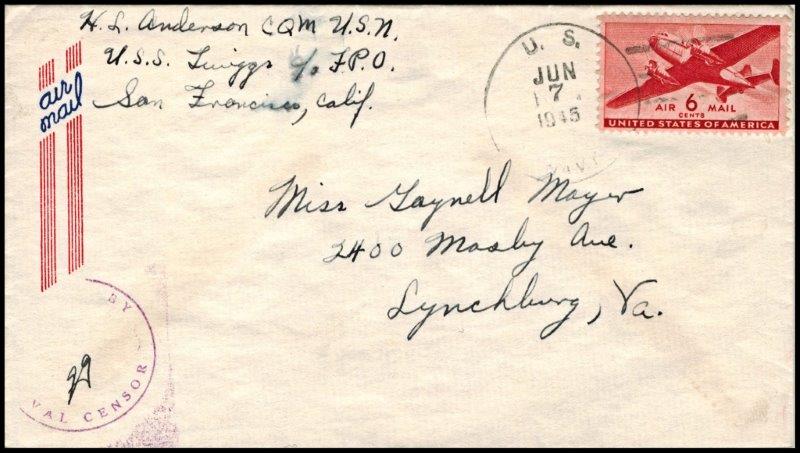 H. L. Anderson CQM U.S.N.
U.S.S. Twiggs c/o F.P.O.
San Francisco, Calif.
air
mail
U. S.
JUN
7
1945
NAVY
AIR 6 MAIL
CENTS
UNITED STATES OF AMERICA
Miss Gaynell Mayer
2400 Mosby Ave.
Lynchburg, Va.
BY
VAL CENSOR